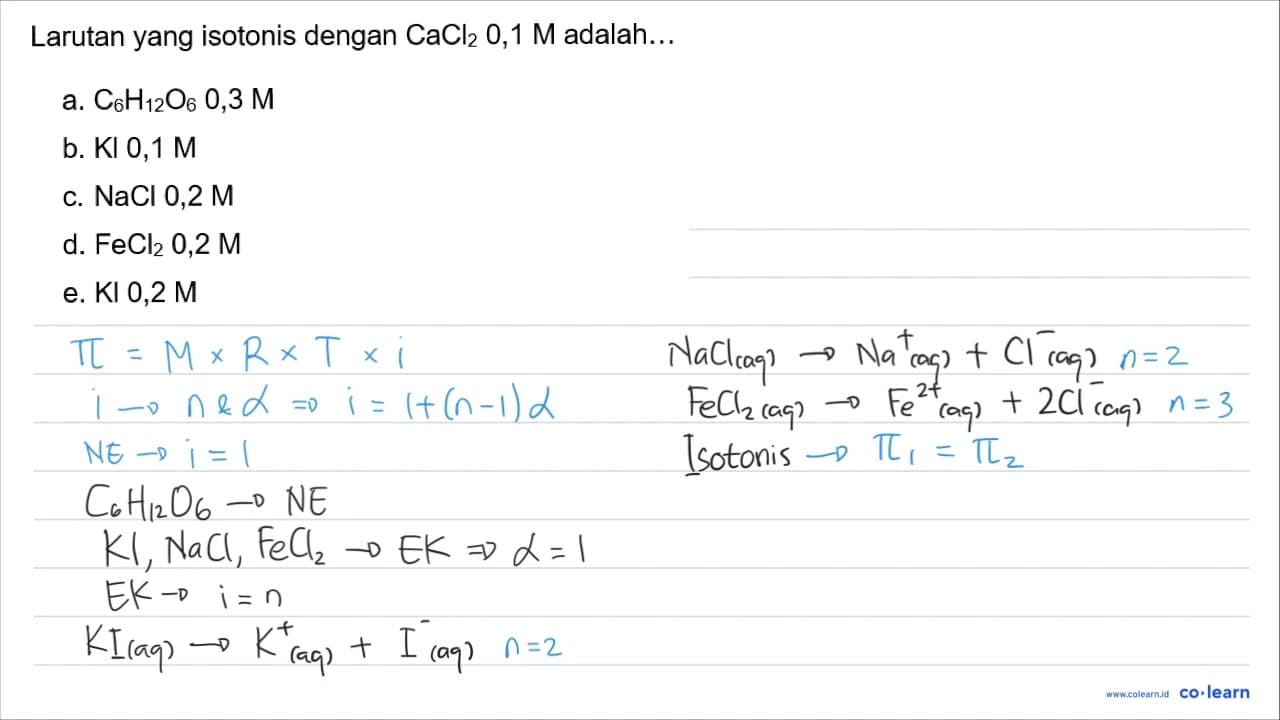 Larutan yang isotonis dengan CaCl₂ 0,1 M adalah...
a. C₆H₁₂O₆ 0,3 M
b. KI 0,1 M
c. NaCl 0,2 M
d. FeCl₂ 0,2 M
e. KI 0,2 M
π = M × R × T × i
i → n & α ⇒ i = 1+(n-1)α
NE → i = 1
C₆H₁₂O₆ → NE
KI, NaCl, FeCl₂ → EK ⇒ α = 1
EK → i = n
KI(aq) → K⁺(aq) + I⁻(aq) n=2
NaCl(aq) → Na⁺(aq) + Cl⁻(aq) n=2
FeCl₂(aq) → Fe²⁺(aq) + 2Cl⁻(aq) n=3
Isotonis → π₁ = π₂
www.colearn.id co·learn